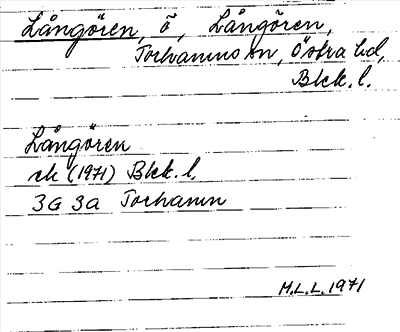 Långören, ö, Långören,
Torhamns sn, Östra hd,
Blek. l.
Långören
ek (1971) Blek. l.
3G 3a Torhamn
M.L.L. 1971